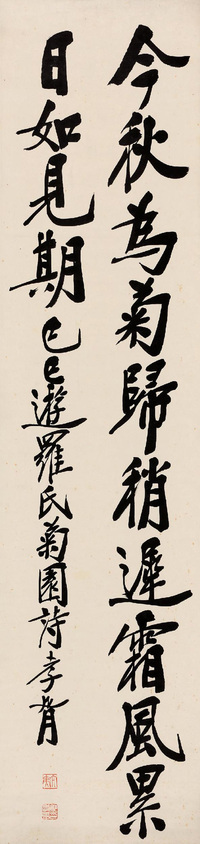 今秋為菊歸稍遲霜風累
日如見期己巳遊羅氏菊園詩孝胥